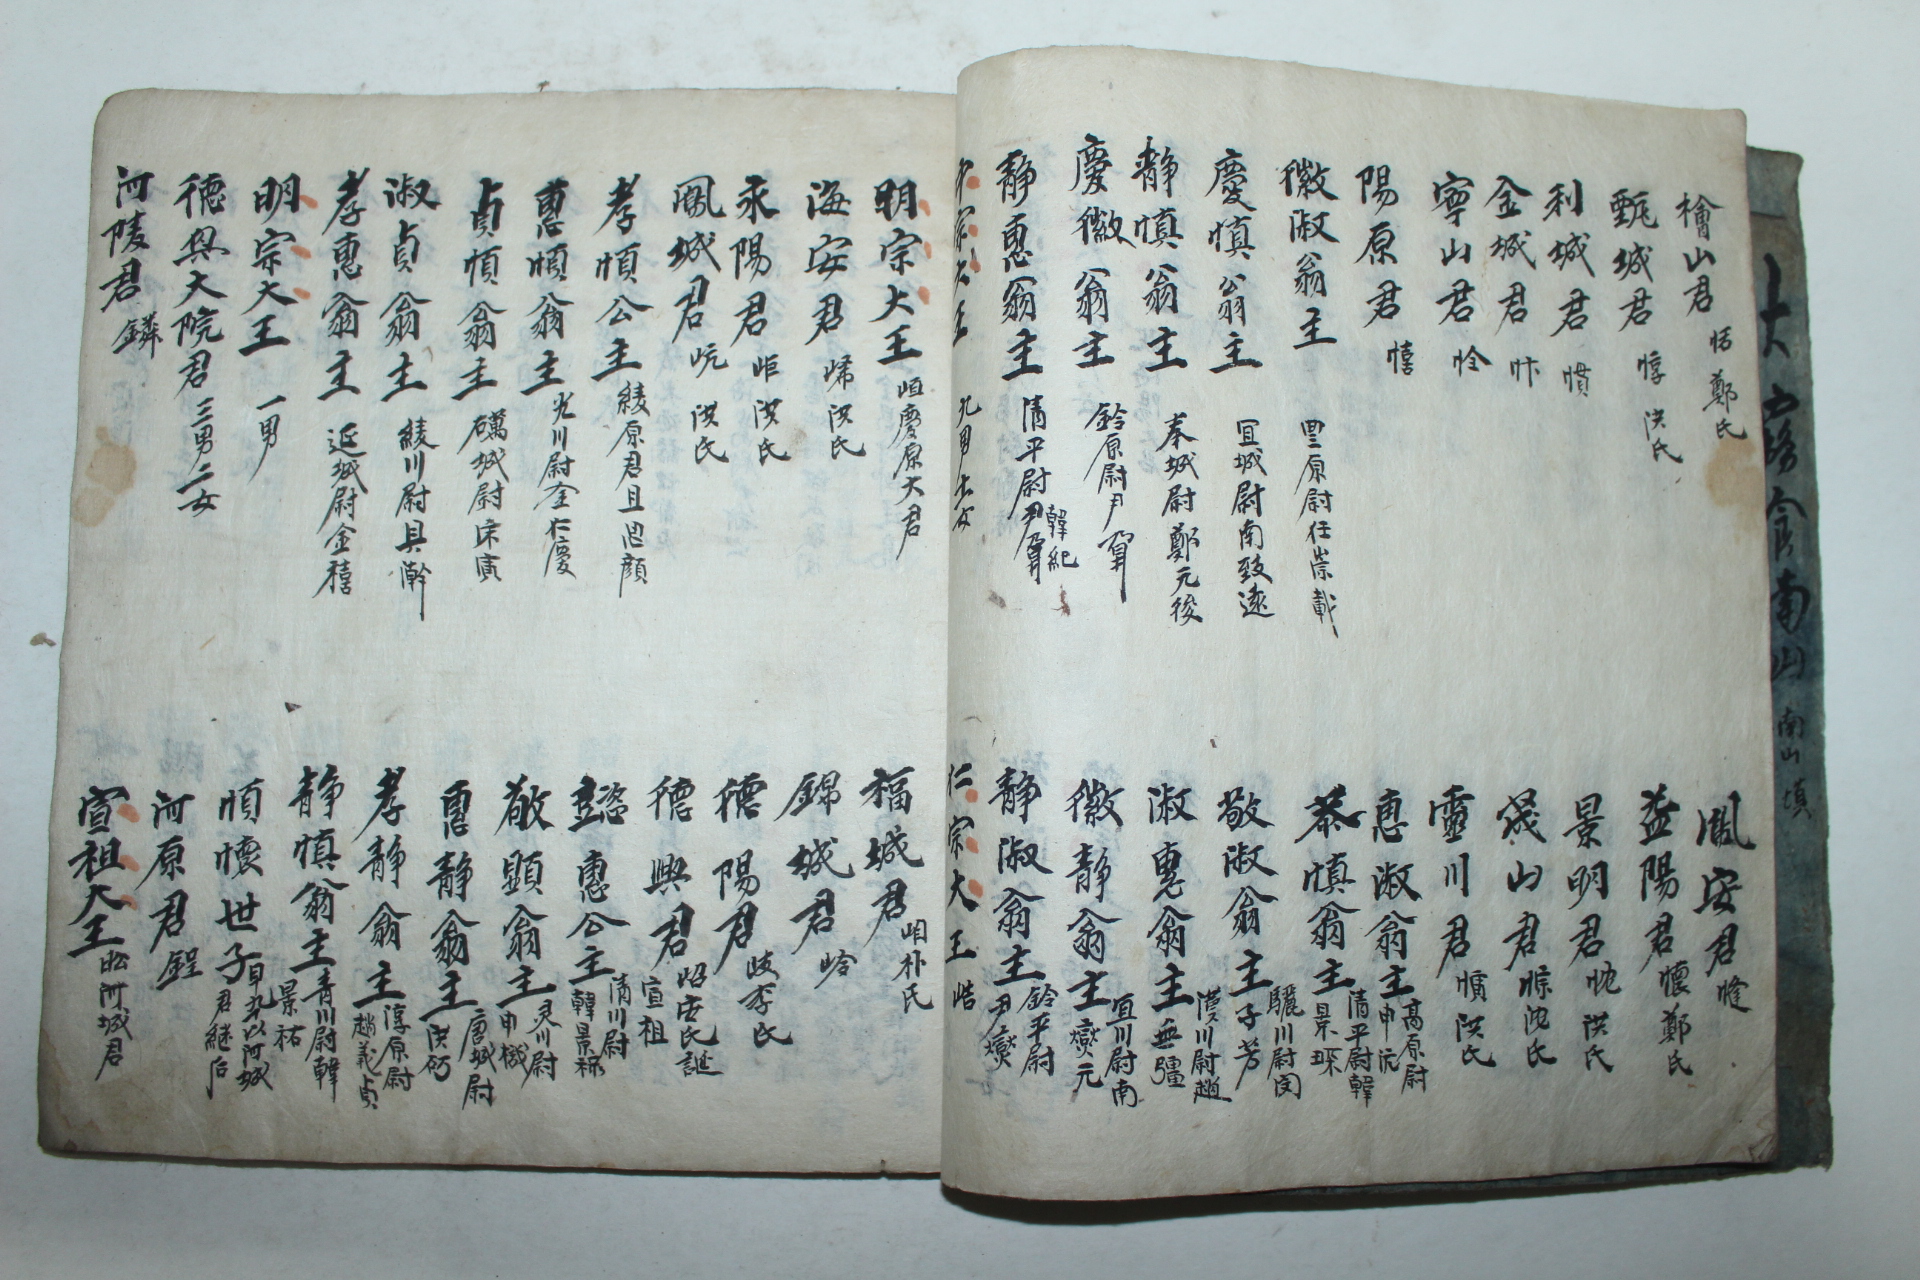 檜山君 恬 鄭氏
甄城君 惇 洪氏
利城君 慣
金城君 忭
寧山君 恮
陽原君 憘
徽淑翁主 豊原尉任崇載
慶愼翁主
靜愼翁主
慶徽翁主 鈴原尉尹鼐
靜惠翁主 清平尉 韓紀
鳳安君 㦀
益陽君 懷 鄭氏
景明君 忱 洪氏
茂山君 悰 沈氏
靈川君 憓 洪氏
惠淑翁主 高原尉申沆
恭愼翁主 清平尉韓景琛
敬淑翁主 驪川尉閔子芳
淑惠翁主 漢川尉趙無彊
徽靜翁主 宜川尉南燮元
靜淑翁主 鈴平尉尹燮
中宗大王 九男十一女
仁宗大王 峼
明宗大王 峘 慶原大君
海安君 㟓 洪氏
永陽君 岠 洪氏
鳳城君 岏 洪氏
孝順公主 綾原君具思顔
惠順翁主 光川尉金仁慶
貞順翁主 礪城尉宋寅
淑貞翁主 綾川尉具澣
孝惠翁主 延城尉金禧
明宗大王 一男
德興大院君 三男二女
河陵君 鏻
福城君 嵋 朴氏
錦城君 岭
德陽君 岐 李氏
德興君 岹 安氏誕宣祖
懿惠公主 清川尉韓景祿
敬顯翁主 灵川尉申檥
惠靜翁主 唐城尉洪礪
孝靜翁主 淳原尉趙義貞
靜愼翁主 青川尉韓景祐
順懷世子 早卒以河城君継后
河原君 鋥
宣祖大王 昖 河城君